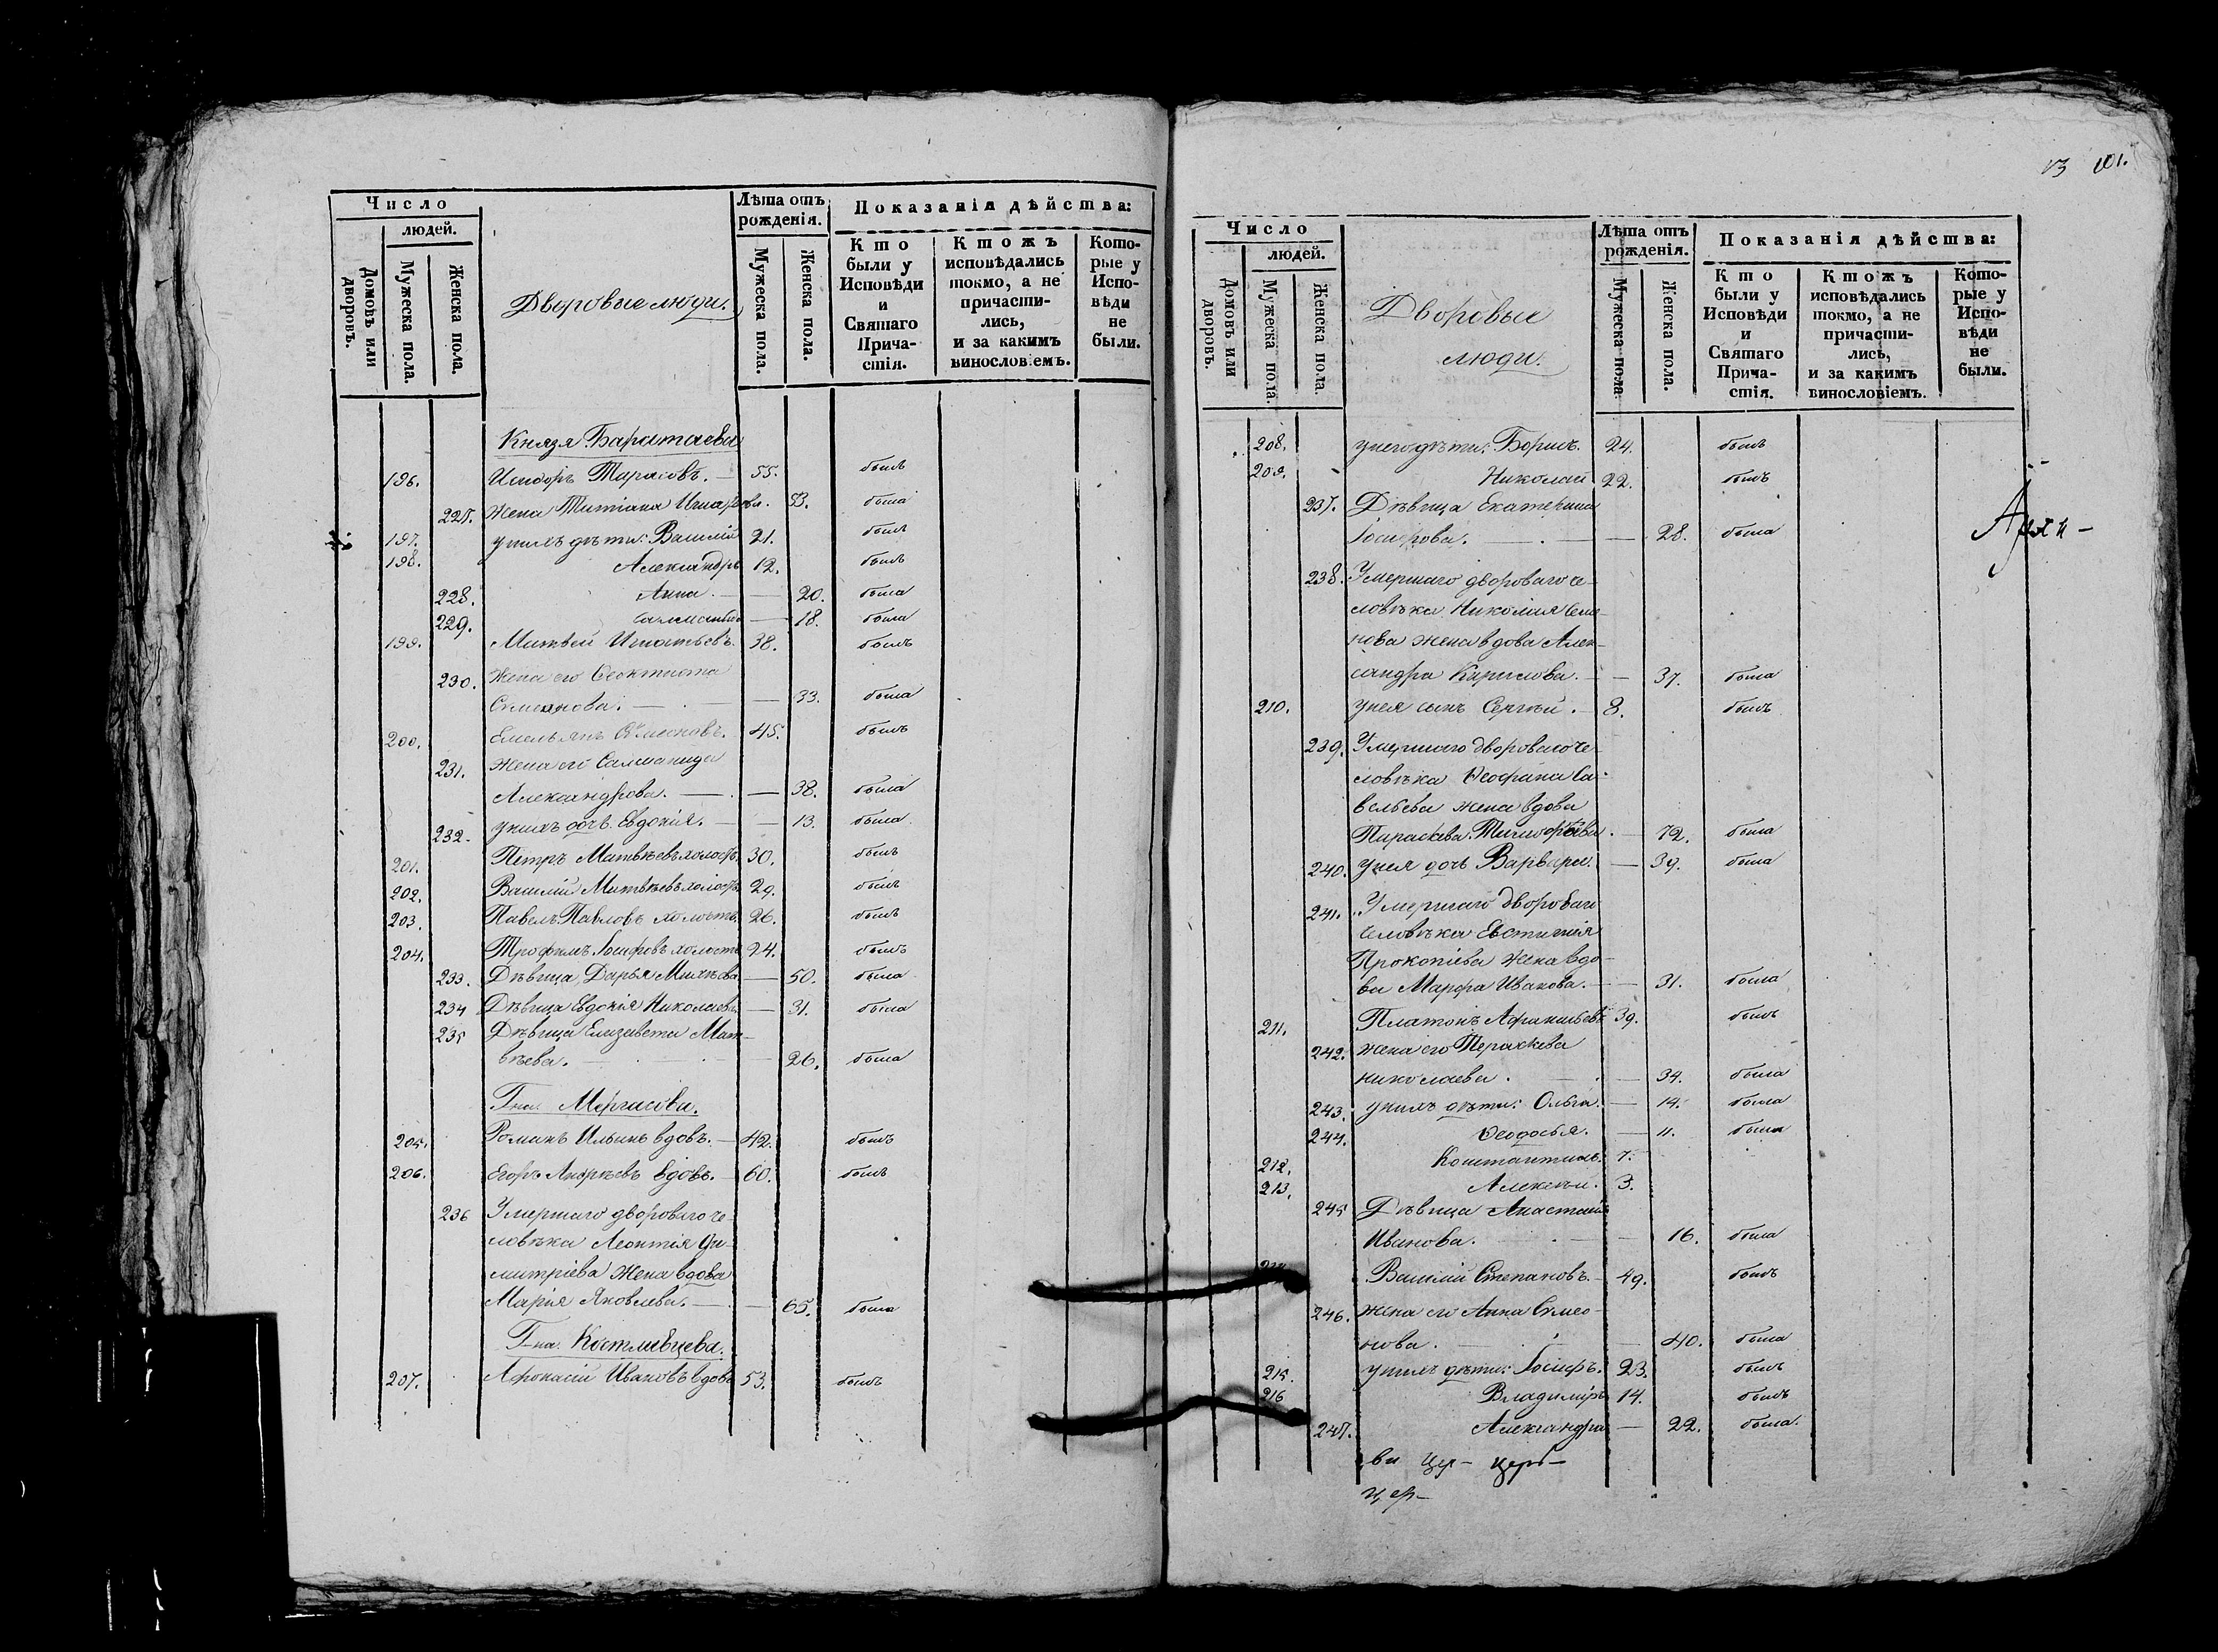 Число
людей.
Домовъ или дворовъ.
Мужеска пола.
Женска пола.
Дворовые люди.
Лѣта отъ рожденія.
Мужеска пола.
Женска пола.
Показанія дѣйства:
Кто были у Исповѣди и Святаго Прича-стія.
Ктожъ исповѣдались токмо, а не причасти-лись, и за какимъ винословіемъ.
Кото-рые у Испо-вѣди не были.
Князя Баратаева
196. Исидоръ Тарасовъ. — 55. былъ
227. Жена Татіана 53. была
197. у нихъ дѣти: Василій 21. былъ
198. Александръ 12. былъ
228. Анна — 20. была
229. — 18. была
199. Матвей Игнатьевъ. 38. былъ
230. Жена его Феоктиста
Симеонова. — 33. была
200. Емельянъ Симеоновъ. 45. былъ
231. Жена его Саломанида
Александрова. — 38. была
232. у нихъ дочь Евдокія. — 13. была
201. Петръ Матвѣевъ холостъ 30. былъ
202. Василій Матвѣевъ холостъ 29. былъ
203. Павелъ Павловъ холостъ 26. былъ
204. Трофимъ Іосифовъ холостъ 24. былъ
233. Дѣвица Дарья — 50. была
234 Дѣвица Евдокія Николаева — 31. была
235 Дѣвица Елизавета Мат-
вѣева. — 26. была
Гна. Мергасова.
205. Романъ Ильинъ вдовъ. — 42. былъ
206. Егоръ Андрѣевъ вдовъ. — 60. былъ
236 Умершаго двороваго че-
ловѣка Леонтія Ди-
митріева жена вдова
Марія Яковлева. — 65. была
Гна. Костливцева.
207. Афонасій Ивановъ вдовъ 53. былъ
13 101.
Число
людей.
Домовъ или дворовъ.
Мужеска пола.
Женска пола.
Дворовые
люди.
Лѣта отъ рожденія.
Мужеска пола
Женска пола.
Показанія дѣйства:
Кто были у Исповѣди и Святаго Прича-стія.
Ктожъ исповѣдались токмо, а не причасти-лись, и за какимъ винословіемъ.
Кото-рые у Испо-вѣди не были.
208. у него дѣти: Борисъ. 24. былъ
209. Николай 22. былъ
237. Дѣвица Екатерина
Іосифова. — 28. была
238. Умершаго двороваго че-
ловѣка Николая Семе-
нова жена вдова Алек-
сандра Кирилова. — 37. была
210. у нея сынъ Сергѣй. — 8. былъ
239. Умершаго двороваго че-
ловѣка Феофана Са-
вельева жена вдова
Параскева Тимофѣева. — 72. была
240. у нея дочь Варвара. — 39. была
241. Умершаго двороваго
человѣка Евстигнѣя
Прокопіева жена вдо-
ва Марфа Иванова. — 31. была
211. Платонъ Афанасьевъ 39. былъ
242. Жена его Пераскева
Николаева. — 34. была
243. у нихъ дѣти: Ольга. — 14. была
244. Феодосья. — 11. была
212. Константинъ. 7.
213. Алексѣй. 3.
245 Дѣвица Анастасія
Иванова. — 16. была
Василій Степановъ. — 49. былъ
246. Жена его Анна Симео-
нова. — 40. была
215. у нихъ дѣти: Іосифъ. 23. былъ
216 Владиміръ 14. былъ
247. Александра — 22. была.
Архи-
ви Цер- церк-
цер-